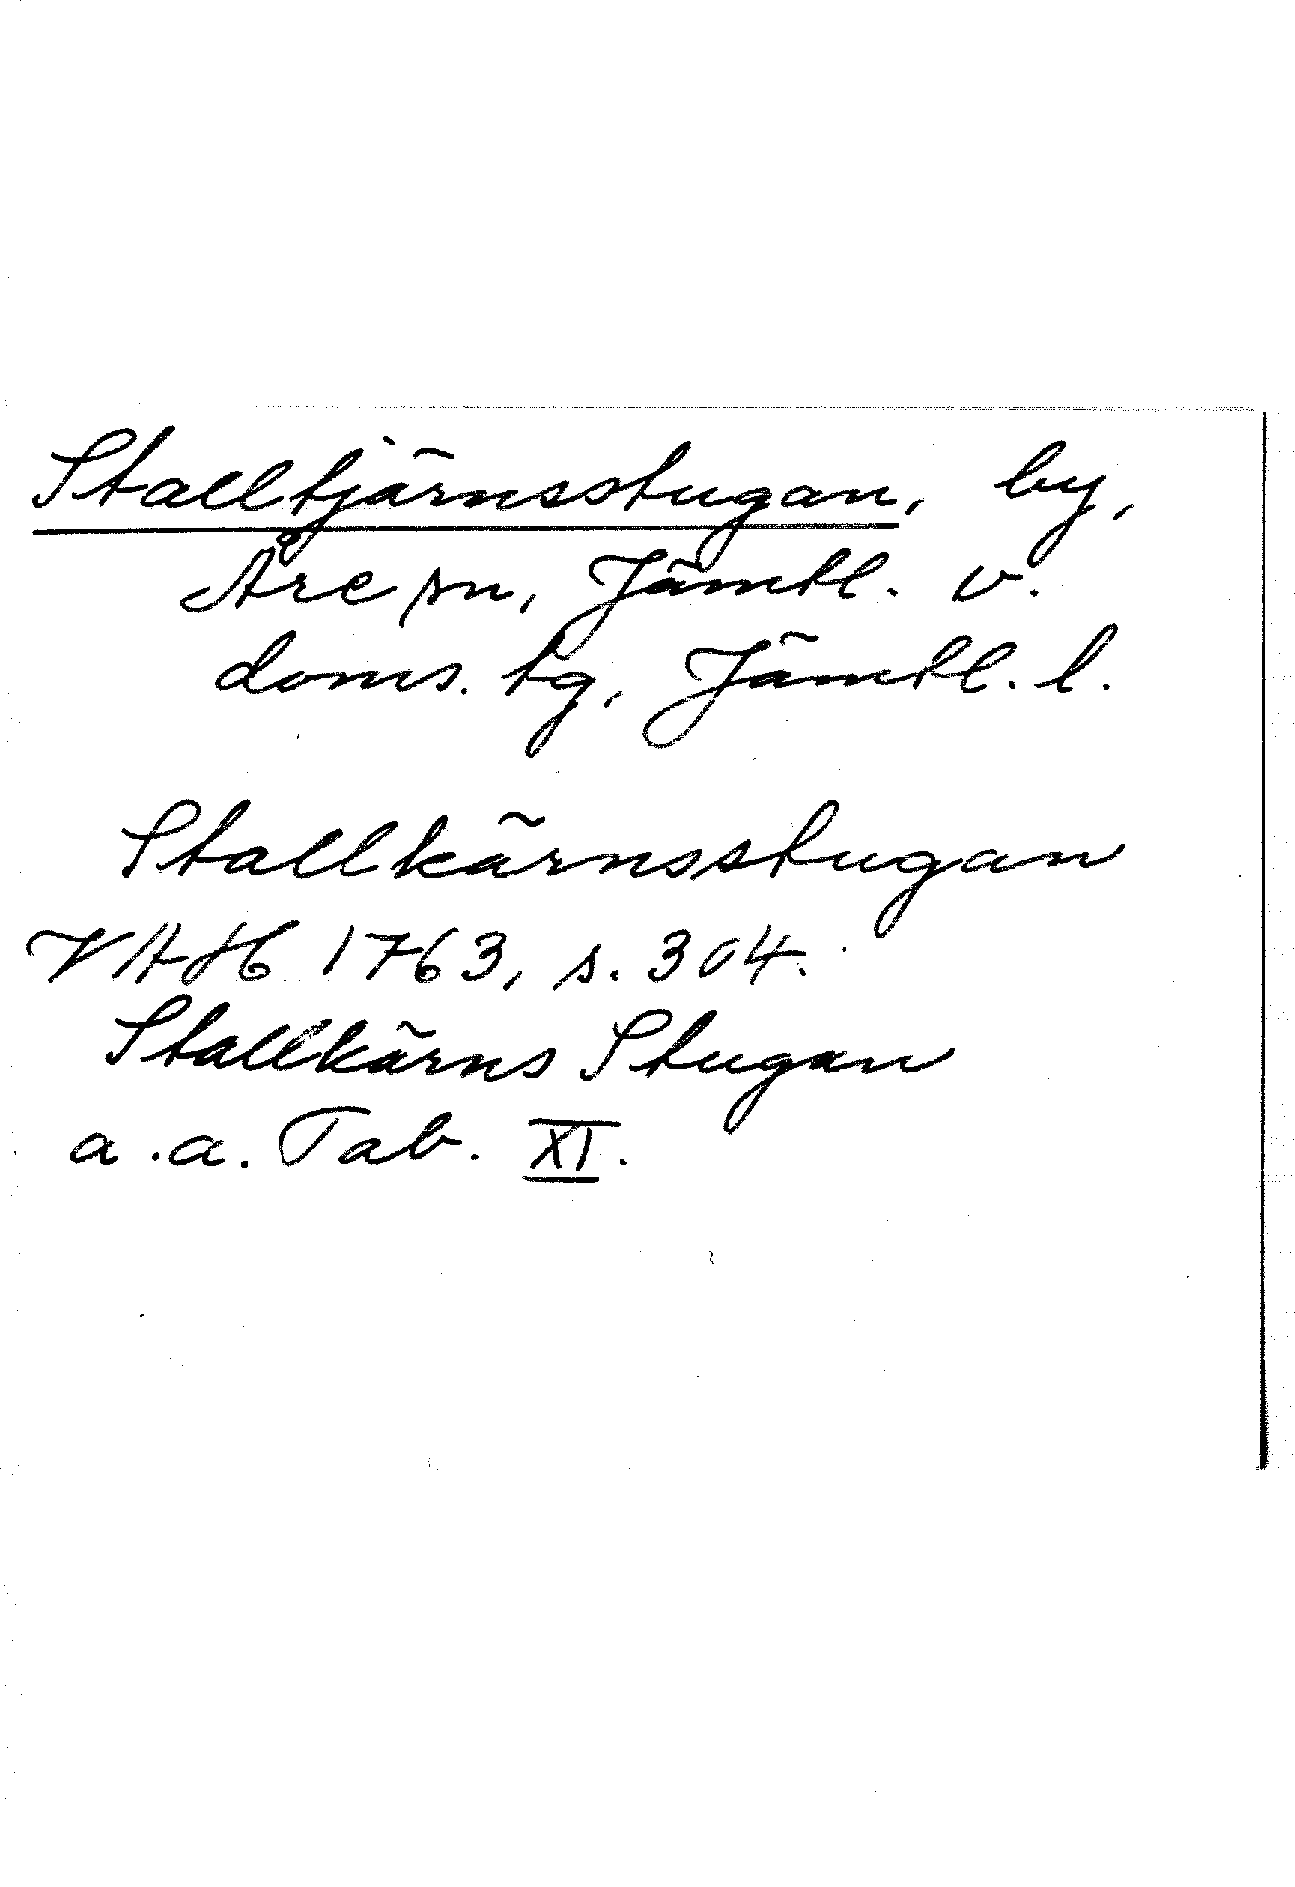 Stalltjärnsstugan, by,
Åre sn, Jämtl. v.
doms. tg, Jämtl. l.
Stallkärnsstugan
VAH 1763, s. 304.
Stallkärns Stugan
a.a. Tab. XI.